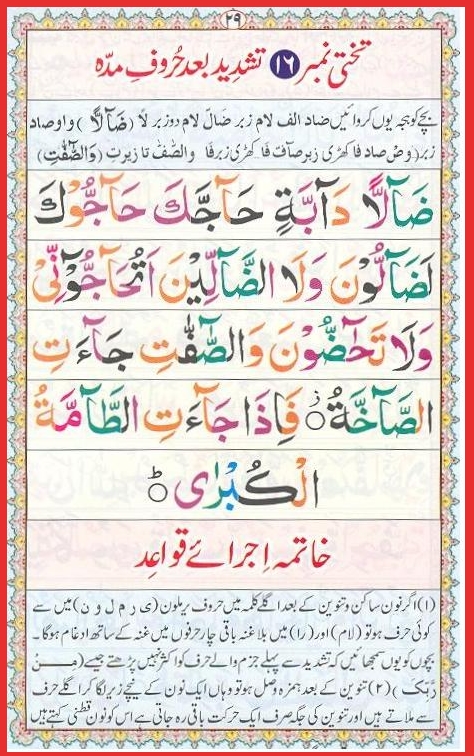 ۲۹
تختی نمبر ۱۶ تشدید بعد حُروفِ مدّہ
بچے کو ہجے یوں کروائیں ضاد الف لام زبر ضَالَ لام دو زبر لاً (ضَآلًّا) واو صاد
زبر (وَصْ صاد فا کھڑی زبر صآفّ فا کھڑی زبر فا والصّٰفّ تا زیر تِ (وَالصّٰٓفّٰتِ)
ضَآلًّا دَآبَّةٍ حَآجَّكَ حَآجُّوْكَ
لَضَآلُّوْنَ وَلَا الضَّآلِّيْنَ اَتُحَآجُّوْٓنِّيْ
وَلَا تَحٰٓضُّوْنَ وَالصّٰٓفّٰتِ جَآءَتِ
الصَّآخَّةُ ز فَاِذَا جَآءَتِ الطَّآمَّةُ
الْكُبْرٰى ط
خاتمہ اِجرائے قواعِد
(۱) اگر نون ساکن و تنوین کے بعد اگلے کلمہ میں حروف یرملون (ی ر م ل و ن) میں سے
کوئی حرف ہو تو (لام) اور (را) میں بلا غنہ باقی چار حرفوں میں غنہ کے ساتھ ادغام ہوگا۔
بچوں کو یوں سمجھائیں کہ تشدید سے پہلے جزم والے حرف کو اکثر نہیں پڑھتے جیسے (مِنْ
رَّبِّكَ) (۲) تنوین کے بعد ہمزہ وصل ہو تو وہاں ایک نون کے نیچے زیر لگا کر اگلے حرف
سے ملاتے ہیں اور تنوین کی جگہ صرف ایک حرکت باقی رہ جاتی ہے اس کو نون قطنی کہتے ہیں